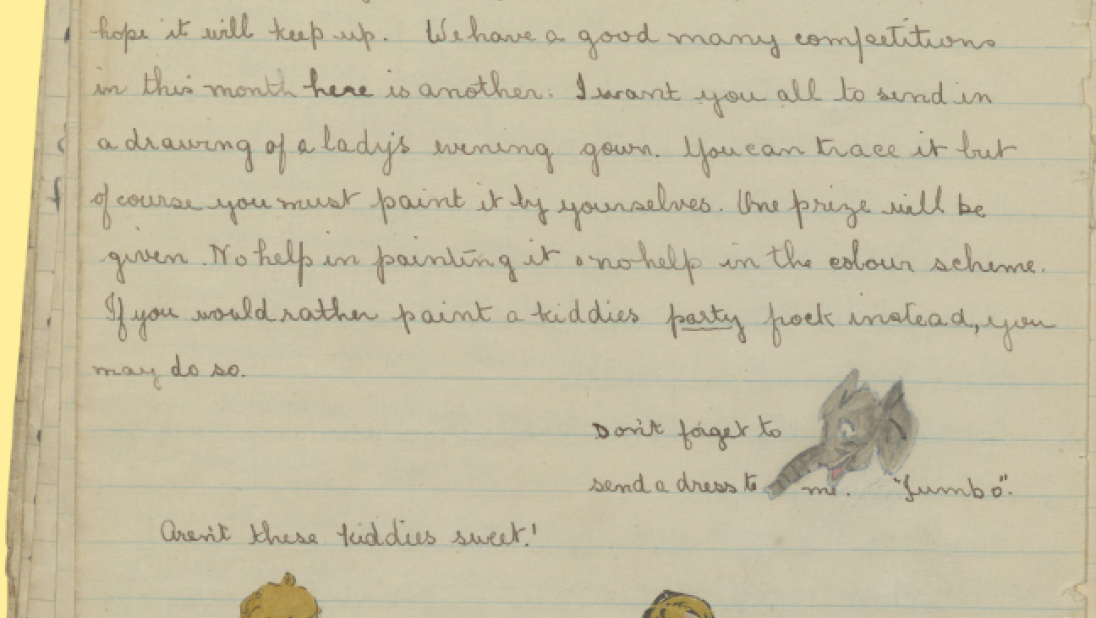 hope it will keep up. We have a good many competitions
in this month here is another: I want you all to send in
a drawing of a lady's evening gown. You can trace it but
of course you must paint it by yourselves. One prize will be
given. No help in painting it & no help in the colour scheme.
If you would rather paint a kiddies party frock instead, you
may do so.
Don't forget to
send a dress to me. "Jumbo".
Aren't these kiddies sweet!